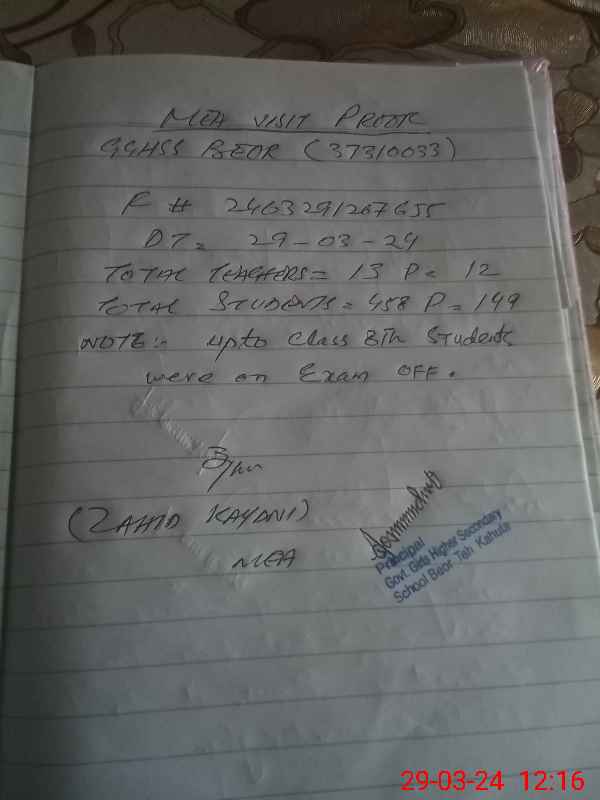 MEA VISIT PROOF
GGHSS BEOR (37310033)
F # 2403291207655
DT= 29-03-24
TOTAL TEACHERS = 13 P= 12
TOTAL STUDENTS = 458 P= 149
NOTE:- upto class 8th students
were on Exam OFF.
(ZAHID KAYANI)
MEA
Principal
Govt. Girls Higher Secondary
School Beor Teh Kahuta
29-03-24 12:16